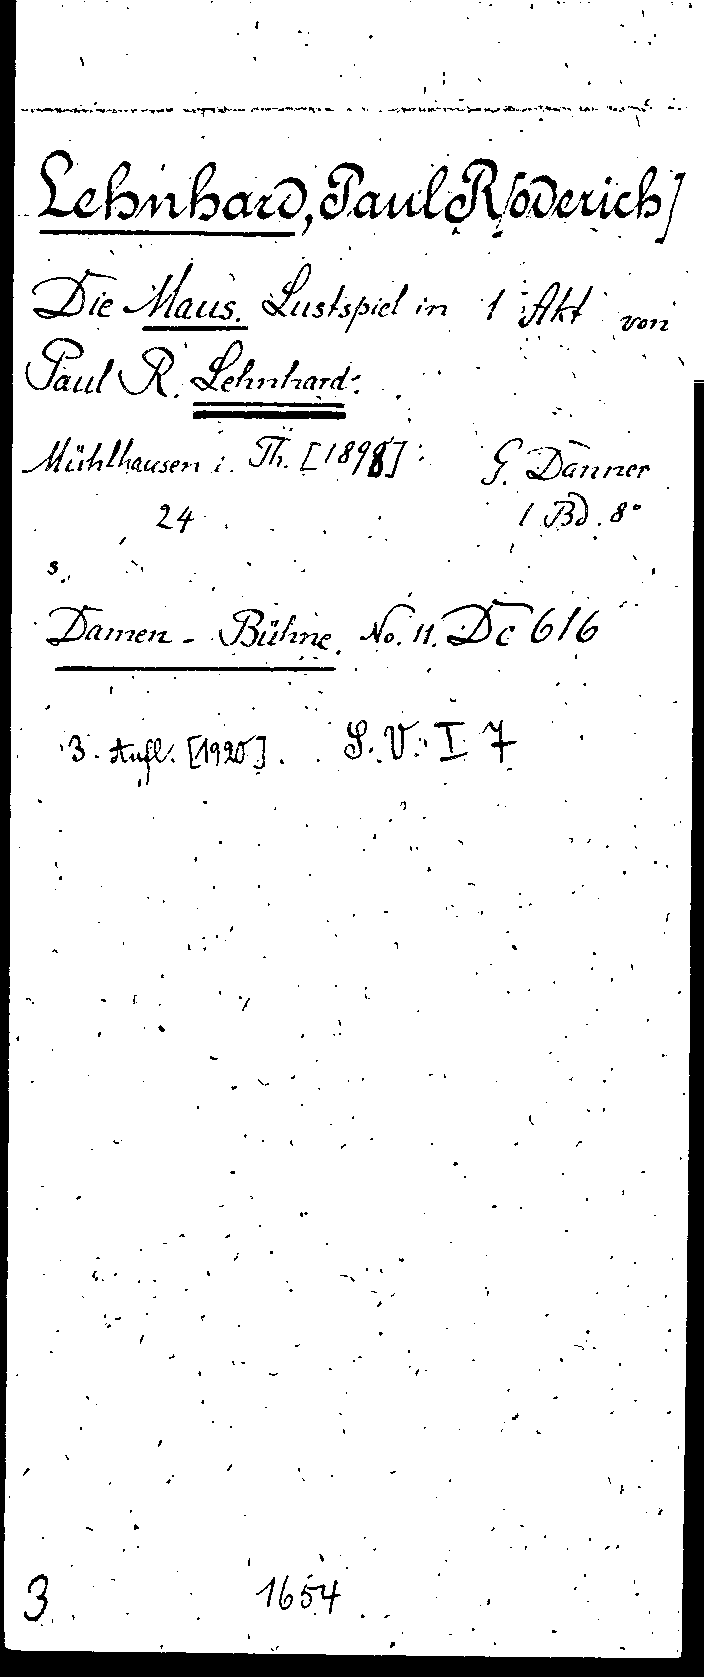 Lehnhard, Paul R[oderich]
Die Maus. Lustspiel in 1 Akt von
Paul R. Lehnhard.
Mühlhausen i. Th. [1898] G. Danner
24 1 Bd. 8°
s.
Damen-Bühne. No. 11. Dc 616
3. Aufl. [1920]. S. V. I 7
3 1654